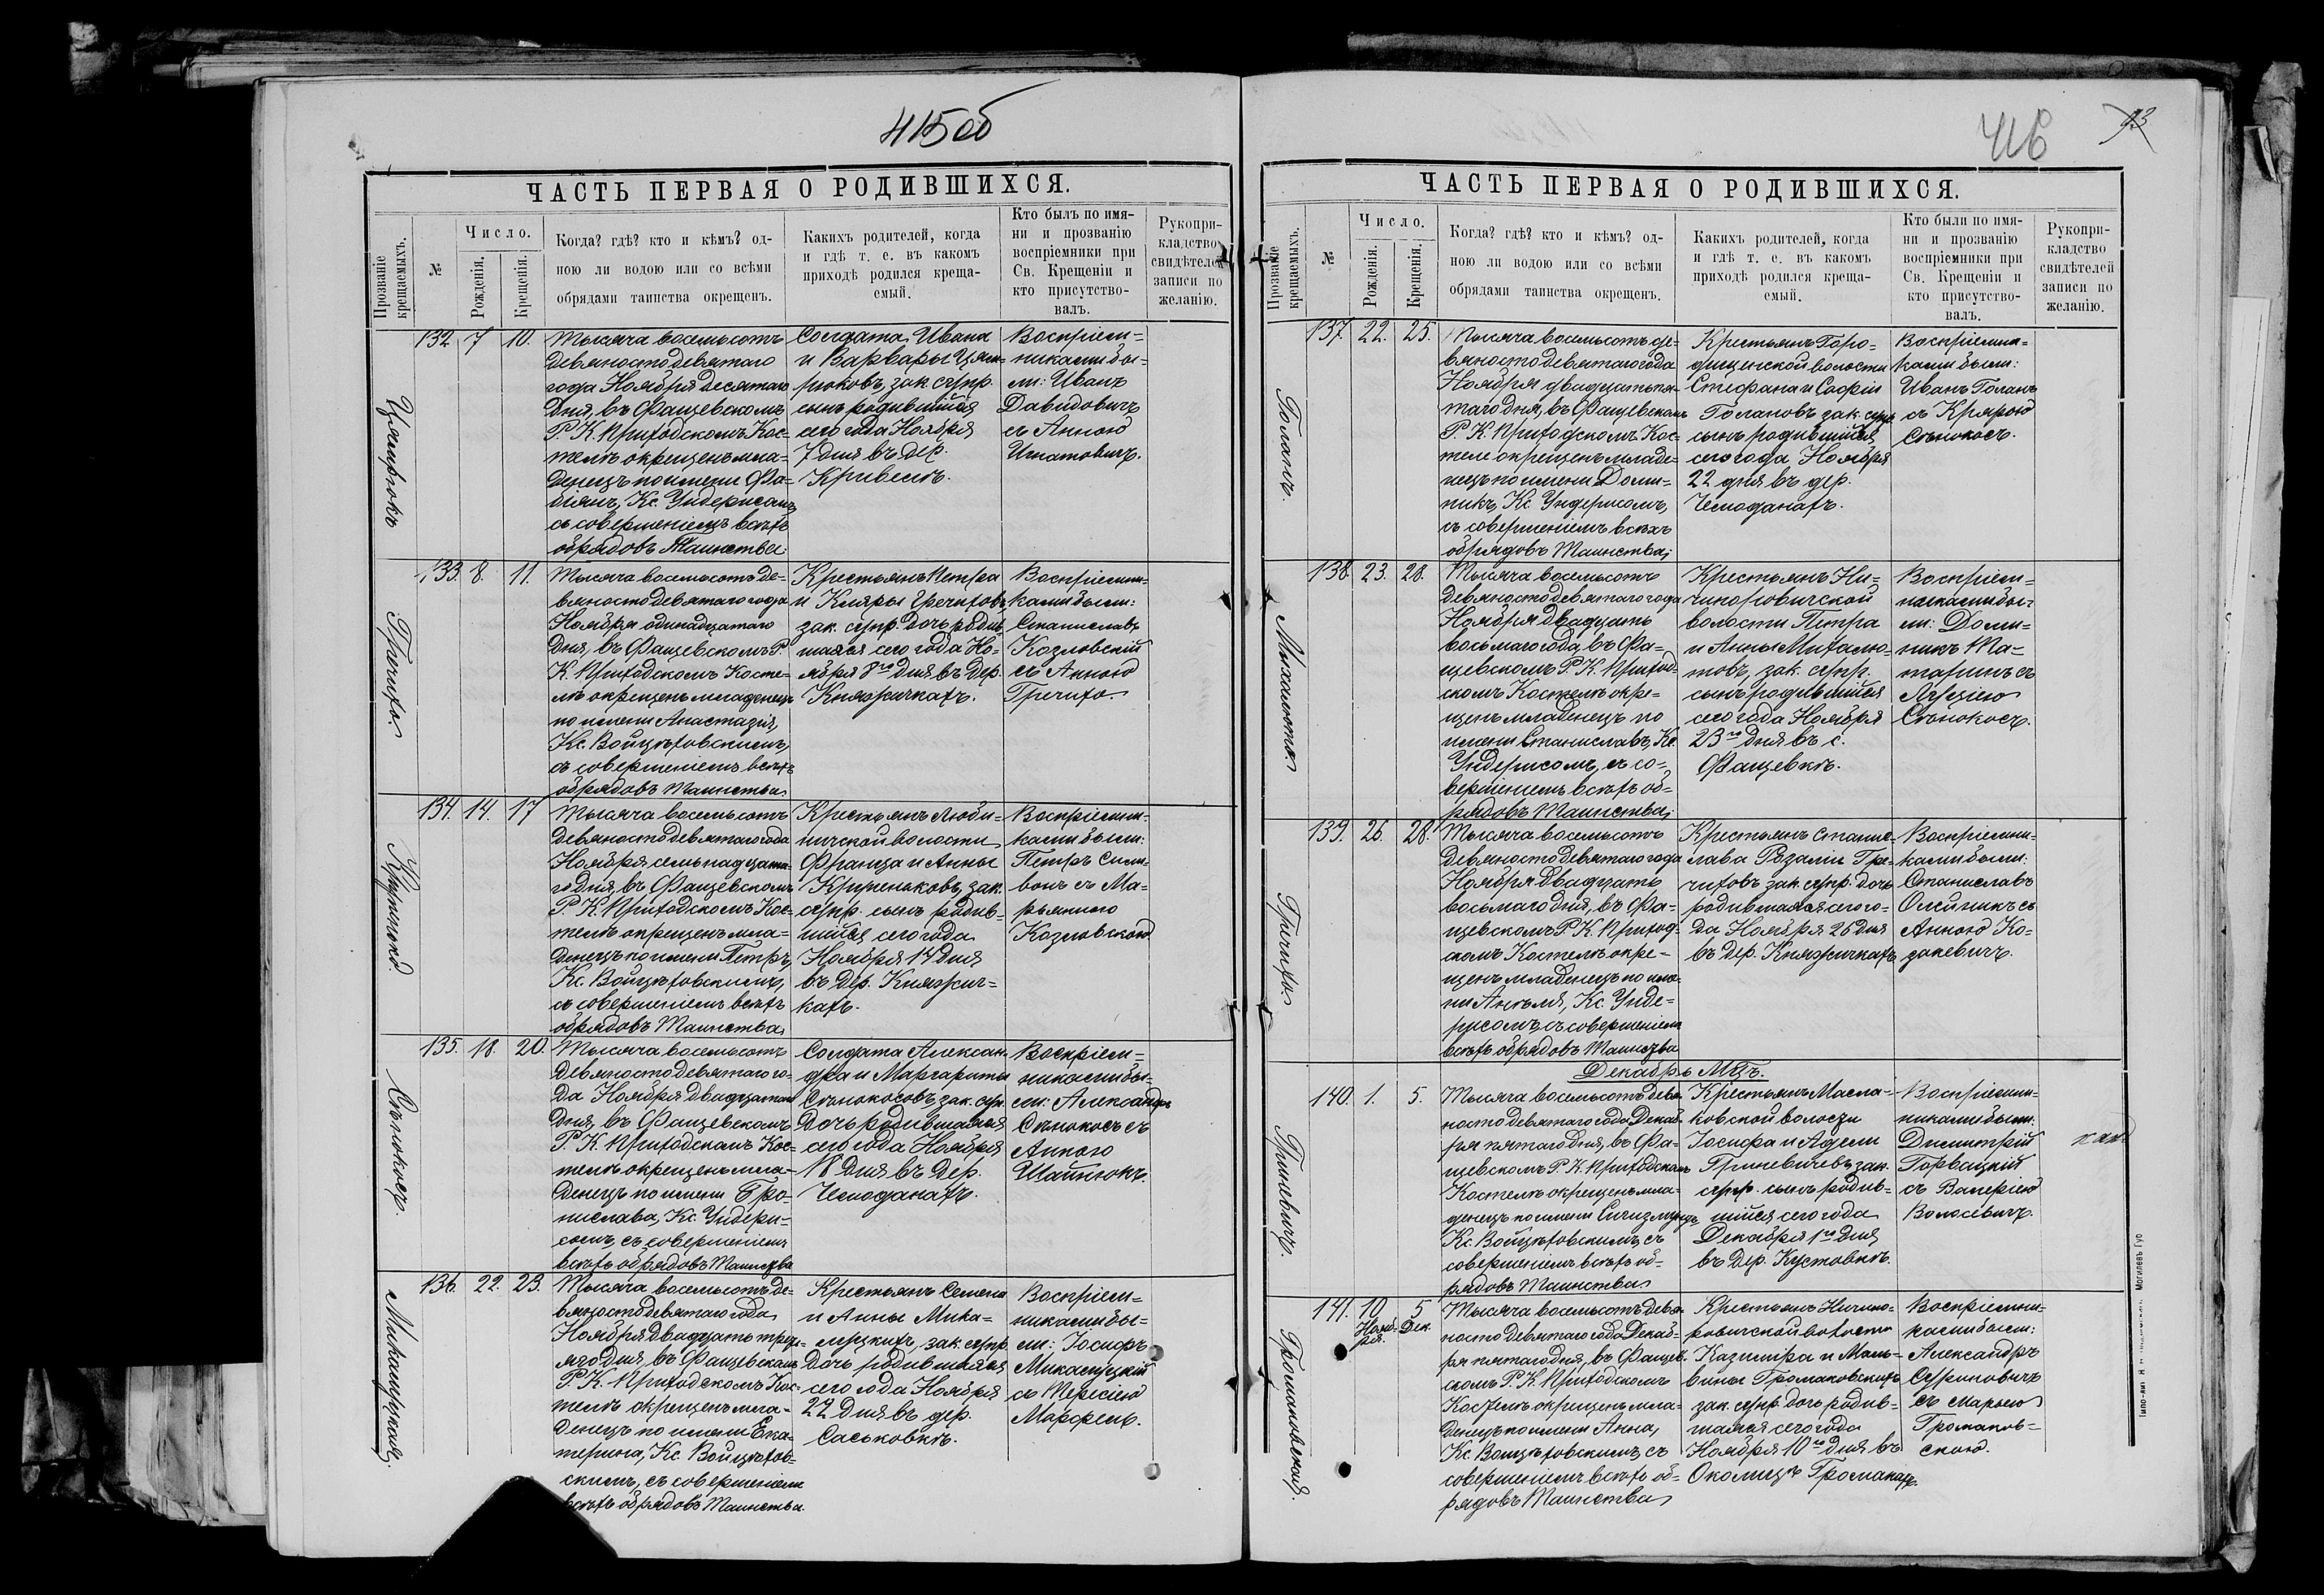 415об
ЧАСТЬ ПЕРВАЯ О РОДИВШИХСЯ.
Прозваніе крещаемыхъ.
№
Число.
Рожденія.
Крещенія.
Когда? гдѣ? кто и кѣмъ? од-
ною ли водою или со всѣми
обрядами таинства окрещенъ.
Какихъ родителей, когда
и гдѣ т. е. въ какомъ
приходѣ родился креща-
емый.
Кто былъ по имя-
ни и прозванію
воспріемники при
Св. Крещеніи и
кто присутство-
валъ.
Рукопри-
кладство
свидѣтелей
записи по
желанію.
132 7 10.
Тысяча восемьсотъ
девяностодевятаго
года Ноября десятаго
дня, въ Фащевскомъ
Р. К. Приходскомъ Кос-
телѣ окрещенъ мла-
денецъ по имени Фа-
біянъ, Кс. Ундерисомъ
съ совершеніемъ всѣхъ
обрядовъ Таинства.
Солдата Ивана
и Варвары
зак. супр.
сынъ родившійся
сего года Ноября
7 дня въ дер.
Кривелѣ.
Воспріем-
никами бы-
ли: Иванъ
Давидовичъ
съ Анною
Игнатовичъ.
133. 8. 11.
Гречихо.
Тысяча восемьсотъ де-
вяностодевятаго года
Ноября одинадцатаго
дня, въ Фащевскомъ Р.
К. Приходскомъ Косте-
лѣ окрещенъ младенецъ
по имени Анастазія,
Кс. Войцѣховскимъ,
съ совершеніемъ всѣхъ
обрядовъ Таинства
Крестьянъ Петра
и Кляры Гречиховъ
зак. супр. дочь родив-
шаяся сего года Но-
ября 8го дня въ дер.
Княжичкахъ.
Воспріемни-
ками были:
Станиславъ
Козловскій
съ Анною
Гречихо.
134. 14. 17
Тысяча восемьсотъ
девяностодевятаго года
Ноября семнадцата-
го дня, въ Фащевскомъ
Р. К. Приходскомъ Кос-
телѣ окрещенъ мла-
денецъ по имени Петръ,
Кс. Войцѣховскимъ,
съ совершеніемъ всѣхъ
обрядовъ Таинства
Крестьянъ Люби-
ничской волости
Франца и Анны
зак.
супр. сынъ родив-
шійся сего года
Ноября 14 дня
въ дер. Княжич-
кахъ.
Воспріемни-
ками были:
Петръ Сили-
вонъ съ Ма-
рьянною
Козловскою
135. 18. 20.
Сѣнокосъ.
Тысяча восемьсотъ
девяностодевятаго го-
да Ноября двадцатаго
дня, въ Фащевскомъ
Р. К. Приходскомъ Кос-
телѣ окрещенъ мла-
денецъ по имени Бро-
нислава, Кс. Ундери-
сомъ, съ совершеніемъ
всѣхъ обрядовъ Таинства
Солдата Алексан-
дра и Маргариты
Сѣнокосовъ, зак. супр.
дочь родившаяся
сего года Ноября
18 дня въ дер.
Чемоданахъ.
Воспріем-
никами бы-
ли: Александръ
Сѣнокосъ съ
Анною
136. 22. 23.
Тысяча восемьсотъ де-
вяностодевятаго года
Ноября двадцать треть-
яго дня, въ Фащевскомъ
Р. К. Приходскомъ Кос-
телѣ окрещенъ мла-
денецъ по имени Ека-
терина, Кс. Войцѣхов-
скимъ, съ совершеніемъ
всѣхъ обрядовъ Таинства
Крестьянъ Семена
и Анны
зак. супр.
дочь родившаяся
сего года Ноября
22 дня въ дер.
Саськовкѣ.
Воспріем-
никами бы-
ли: Іосифъ
съ Тересіею
416
93
ЧАСТЬ ПЕРВАЯ О РОДИВШИХСЯ.
Прозваніе крещаемыхъ.
№
Число.
Рожденія.
Крещенія.
Когда? гдѣ? кто и кѣмъ? од-
ною ли водою или со всѣми
обрядами таинства окрещенъ.
Какихъ родителей, когда
и гдѣ т. е. въ какомъ
приходѣ родился креща-
емый.
Кто были по имя-
ни и прозванію
воспріемники при
Св. Крещеніи и
кто присутство-
валъ.
Рукопри-
кладство
свидѣтелей
записи по
желанію.
137. 22. 25.
Голанъ.
Тысяча восемьсотъ де-
вяностодевятаго года
Ноября двадцать пя-
таго дня, въ Фащевскомъ
Р. К. Приходскомъ Кос-
теле окрещенъ младе-
нецъ по имени Доми-
никъ, Кс. Ундерисомъ,
съ совершеніемъ всѣхъ
обрядовъ Таинства;
Крестьянъ Горо-
дищенской волости
Стефана и Софіи
Голановъ зак. супр.
сынъ родившійся
сего года Ноября
22 дня въ дер.
Чемоданахъ.
Воспріемни-
ками были:
Иванъ Голанъ
съ Клярою
Сѣнокосъ.
138. 23. 28.
Тысяча восемьсотъ
девяностодевятаго года
Ноября двадцать
восьмаго года, въ Фа-
щевскомъ Р. К. Приход-
скомъ Костелѣ окре-
щенъ младенецъ по
имени Станиславъ, Кс.
Ундерисомъ, съ со-
вершеніемъ всѣхъ об-
рядовъ Таинства;
Крестьянъ Ни-
чипоровичской
волости Петра
и Анны Михалю-
товъ, зак. супр.
сынъ родившійся
сего года Ноября
23го дня въ с.
Фащевкѣ.
Воспріем-
никами бы-
ли: Доми-
никъ Ма-
таринъ съ
Люціею
Сѣнокосъ.
139. 26. 28.
Гричихо.
Тысяча восемьсотъ
девяностодевятаго года
Ноября двадцать
восьмаго дня, въ Фа-
щевскомъ Р. К. Приход-
скомъ Костелѣ окре-
щенъ младенецъ по име-
ни Анѣля, Кс. Унде-
рисомъ, съ совершеніемъ
всѣхъ обрядовъ Таинства
Крестьянъ Станис-
лава Розаліи Гре-
чиховъ зак. супр. дочь
родившаяся сего го-
да Ноября 26 дня
въ дер. Княжичкахъ
Воспріемни-
ками были:
Станиславъ
Олейникъ съ
Анною Ко-
закевичъ.
Декабрь Мцъ.
140. 1. 5.
Гриневичъ.
Тысяча восемьсотъ девя-
ностодевятаго года Декаб-
ря пятаго дня, въ Фа-
щевскомъ Р. К. Приходскомъ
Костелѣ окрещенъ мла-
денецъ по имени Сигизмундъ
Кс. Войцѣховскимъ, съ
совершеніемъ всѣхъ об-
рядовъ Таинства
Крестьянъ Масла-
ковской волости
Іосифа и Адели
Гриневичевъ зак.
супр. сынъ родив-
шійся сего года
Декабря 1го дня
въ дер. Кустовкѣ.
Воспріемни-
никами были:
Дмитрій
Горвацкій
съ Валеріею
Волосевичъ.
141. 10 Нояб-ря. 5 Дек.
Громаковская.
Тысяча восемьсотъ девя-
ностодевятаго года Декаб-
ря пятаго дня, въ Фащев-
скомъ Р. К. Приходскомъ
Костелѣ окрещенъ мла-
денецъ по имени Анна,
Кс. Войцѣховскимъ, съ
совершеніемъ всѣхъ об-
рядовъ Таинства
Крестьянъ Ничипо-
ровичской волости
Казимира и Маль-
вины Громаковскихъ
зак. супр. дочь родив-
шаяся сего года
Ноября 10го дня въ
Околицѣ Громакахъ.
Воспріемни-
ками были:
Александръ
съ Марьею
Громаков-
скою.
Могилевъ Губ